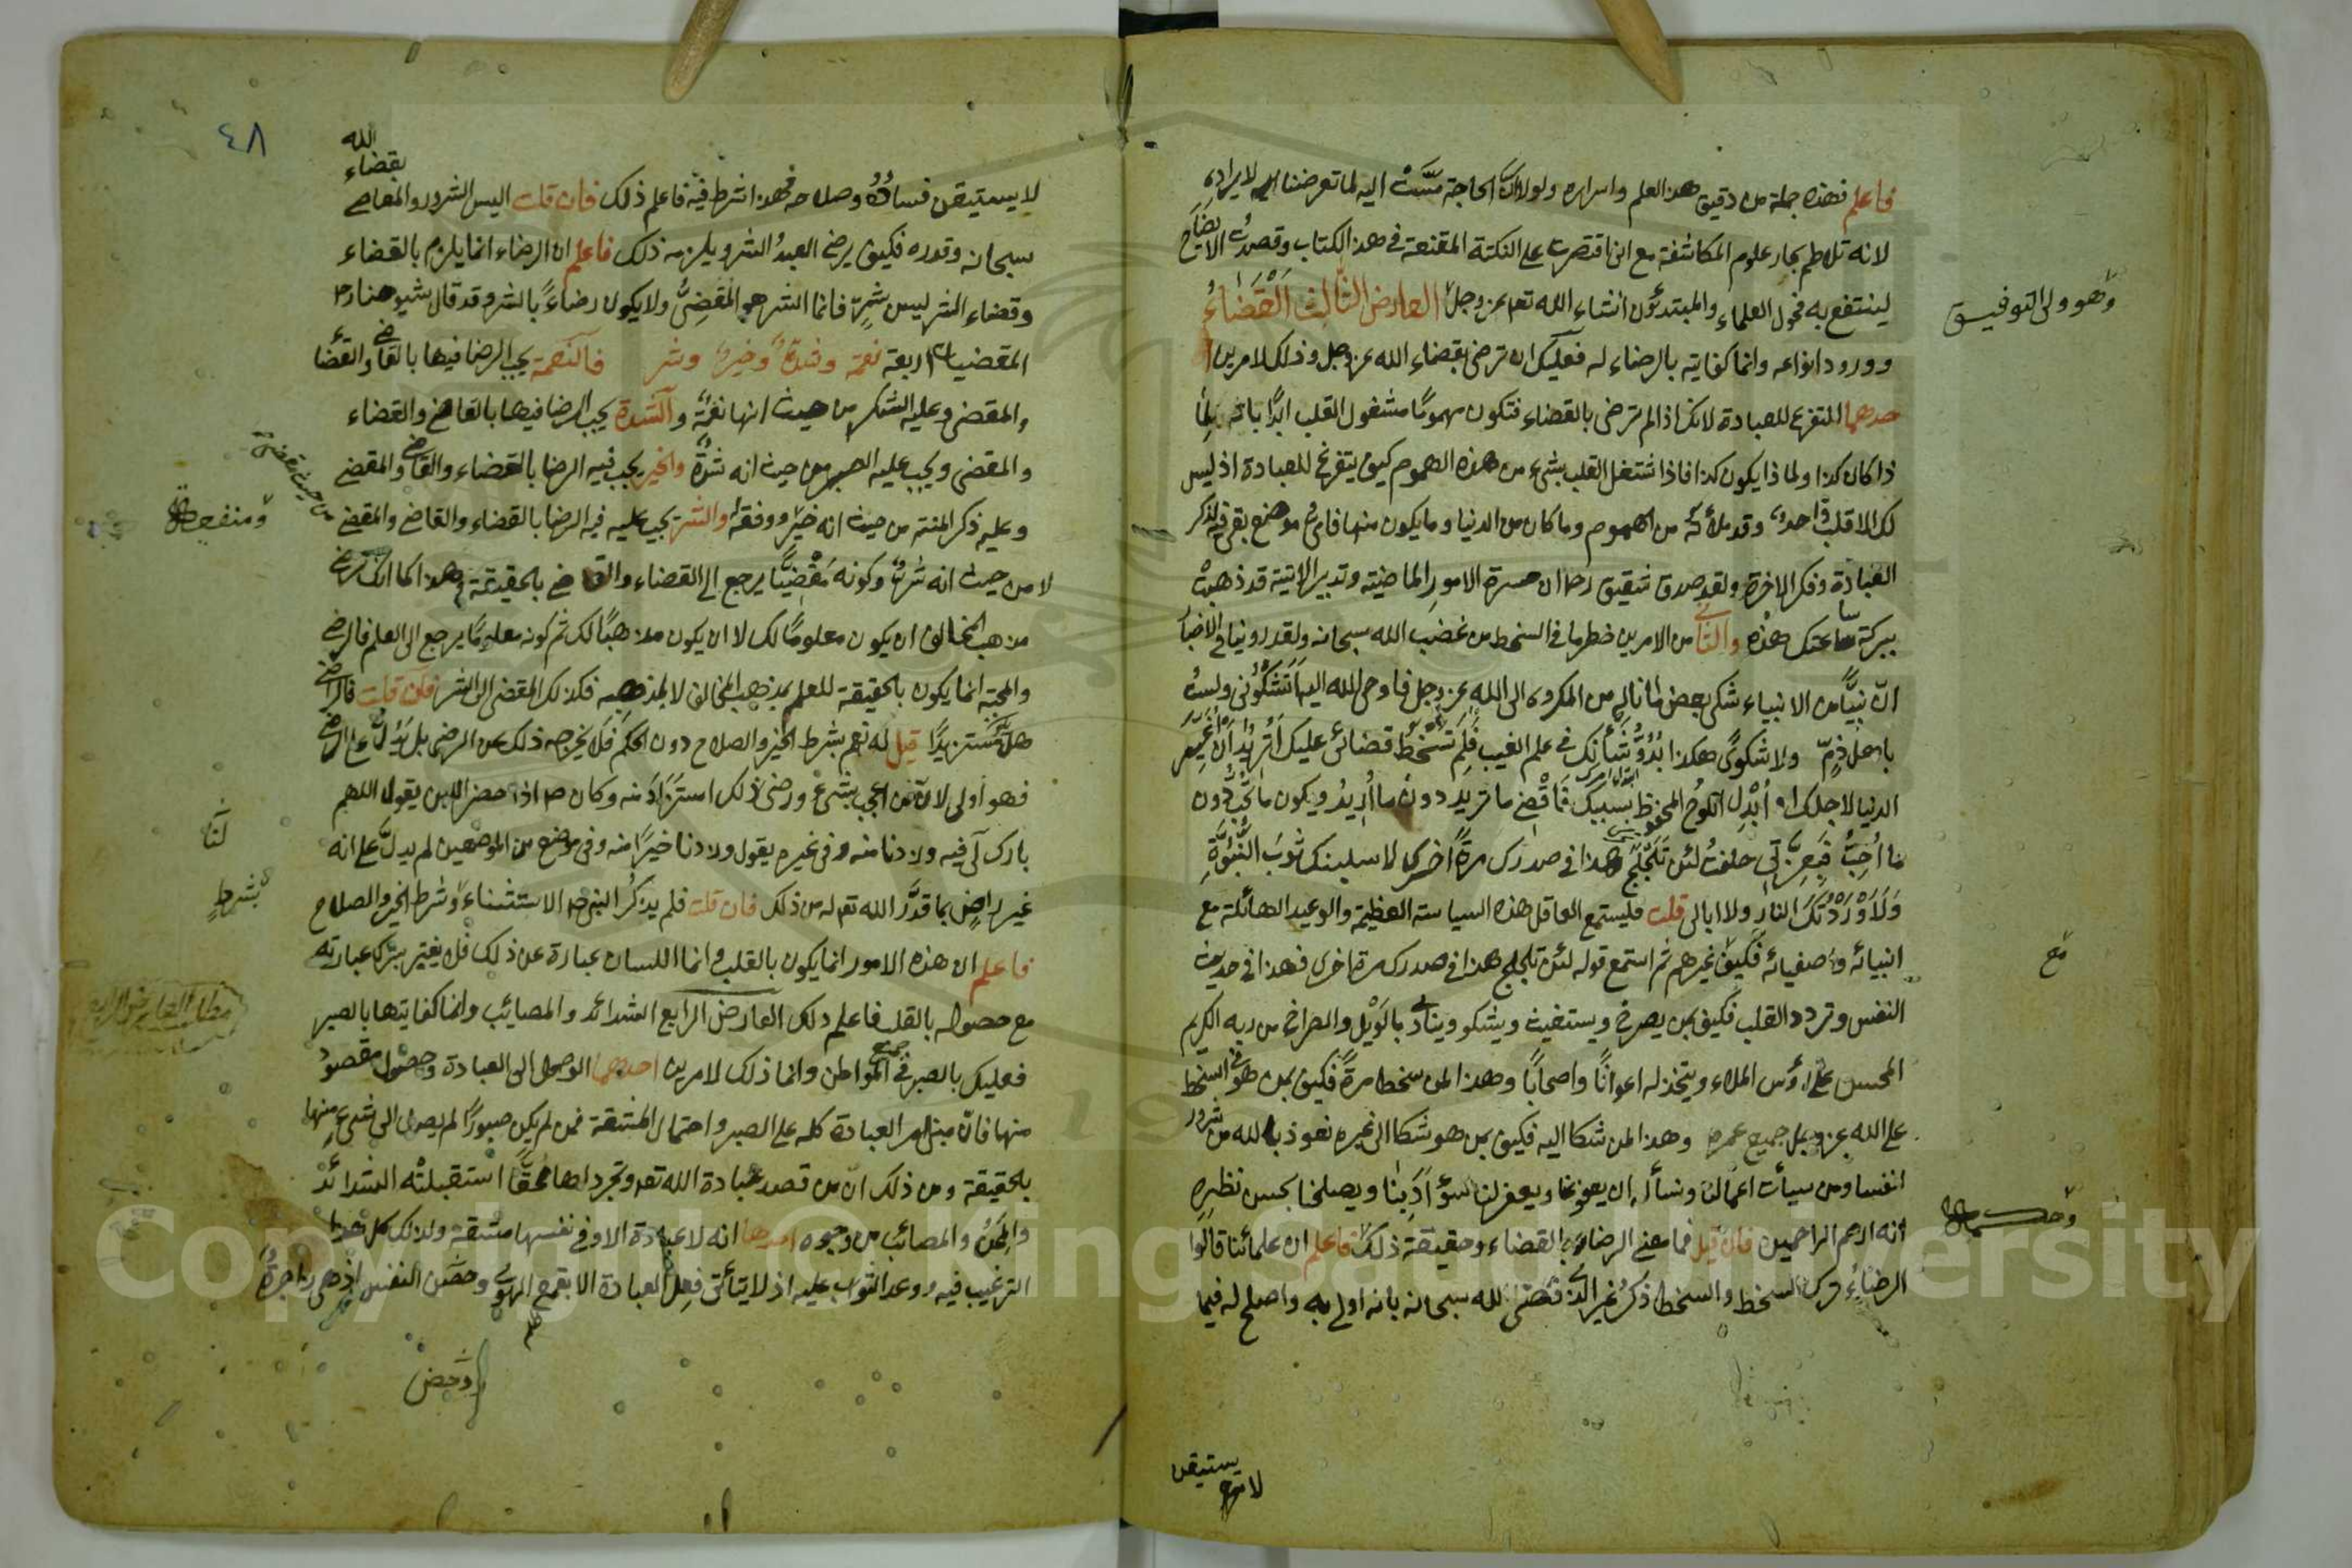 فاعلم فهذه جملة من دقيق هذا العلم واسراره ولولا ان الحاجة مسّت اليه لما تعرضنا لايراده
لانه تلاطم بحار علوم المكاشفة مع انى اقتصرت على النكتة المقنعة فى هذا الكتاب وقصدت الايضاح
لينتفع به فحول العلماء والمبتدئون انشاء الله تعالى عز وجل العارض الثالث القضاء
وهو ولى التوفيق
وورود انواعه وانما كفايته بالرضاء له فعليك ان ترضى بقضاء الله عز وجل وذلك لامرين ا
حدهما للتفرغ للعبادة لانك اذا لم ترضى بالقضاء فتكون مهموما مشغول القلب ابدا بانه لما
ذا كان كذا ولما ذا يكون كذا فاذا اشتغل القلب بشىء من هذه الهموم كيف يتفرغ للعبادة اذ ليس
لك الا قلب واحد وقد ملأته من الهموم وما كان من الدنيا وما يكون منها فاى موضع بقى فيه لذكر
العبادة وفكر الاخرة ولقد صدق شقيق رح ان حسرة الامور الماضية وتدبير الاتية قد ذهبت
ببركة ساعتك هذه والثانى من الامرين خطر ما فى السخط من غضب الله سبحانه ولقد روينا فى الاخبار
انّ نبيّا من الانبياء شكى بعض ما ناله من المكروه الى الله عز وجل فاوحى الله اليه أتشكونى ولست
باهل ذمّ ولا شكوى هكذا بدوّ شأنك فى علم الغيب فلم تسخط قضائى عليك أتريد أن أغير
الدنيا لاجلك او أبدل اللوح المحفوظ بسببك فأقضى ما تريد دون ما أريد ويكون ما تحب دون
ما أحب فبعزتى حلفت لئن تلجلج هذا فى صدرك مرة اخرى لاسلبنك ثوب النبوّة
ولأوردنّك النار ولا ابالى قلت فليستمع العاقل هذه السياسة العظيمة والوعيد الهائلة مع
انبيائه واصفيائه فكيف غيرهم ثم استمع قوله لئن تلجلج هذا فى صدرك مرة اخرى فهذا فى حديث
مع
النفس وتردد القلب فكيف بمن يصرخ ويستغيث ويشكو وينادى بالويل والصراخ من ربه الكريم
المحسن على رؤس الملاء ويتخذ له اعوانا واصحابا وهذا لمن سخط مرة فكيف بمن هو فى السخط
على الله عز وجل جميع عمره وهذا لمن شكا اليه فكيف بمن هو شكا الى غيره نعوذ بالله من شرور
انفسنا ومن سيأت اعمالنا ونسأله ان يعفو عنا ويغفر لنا سوء أدبنا ويصلحنا بحسن نظره
انه ارحم الراحمين فان قيل فما معنى الرضاء بالقضاء وحقيقة ذلك فاعلم ان علمائنا قالوا
الرضاء ترك السخط والسخط ذكر غير الذى قضى الله سبحانه بانه اولى به واصلح له فيما
لا يستيقن
٤٨
لا يستيقن فساده وصلاحه فهذا شرط فيه فاعلم ذلك فان قلت اليس الشرور والمعاصى بقضاء الله
سبحانه وقدره فكيف يرضى العبد الشر ويلزمه ذلك فاعلم ان الرضاء انما يلزم بالقضاء
وقضاء الشر ليس بشرّ فانما الشر هو المقضىّ ولا يكون رضاء بالشر وقد قال شيوخنا رح
المقضيات اربعة نعمة وشدة وخير وشر فالنعمة يجب الرضا فيها بالقاضى والقضاء
والمقضى وعليه الشكر من حيث انها نعمة والشدة يجب الرضا فيها بالقاضى والقضاء
والمقضى ويجب عليه الصبر من حيث انه شدة والخير يجب فيه الرضا بالقضاء والقاضى والمقضى
وعليه ذكر المنة من حيث انه خير ووفقه والشر يجب عليه فيه الرضا بالقضاء والقاضى والمقضى
من حيث مقضى
لا من حيث انه شر وكونه مقضيا يرجع الى القضاء والقاضى بالحقيقة وهذا كما انك ترضى
مذهب المخالف ان يكون معلوما لك لا ان يكون مذهبا لك ثم كونه معلوما يرجع الى العلم فالرضى
والمحبة انما يكون بالحقيقة للعلم بمذهب المخالف لا لمذهبه فكذلك المقضى الى الشر فان قلت فالراضى
هل مستزيدا قيل له نعم بشرط الخير والصلاح دون الحكم فلا يخرجه ذلك عن الرضى بل يدل على الرضى
فهو أولى لانّ من اعجب بشىء ورضى ذلك استزاد منه وكان ص اذا حضر اللبن يقول اللهم
بارك لى فيه وزدنا منه وفى غيره يقول وزدنا خيرا منه وفى موضع من الموضعين لم يدلّ على انه
لنا
غير راض بما قدّر الله تعالى له من ذلك فان قلت فلم يذكر النبى ص الاستثناء وشرط الخير والصلاح
بشرط
فاعلم ان هذه الامور انما يكون بالقلب وانما اللسان عبارة عن ذلك فلا يغتير بترك عبارته
مع حصوله بالقلب فاعلم ذلك العارض الرابع الشدائد والمصائب وانما كفايتها بالصبر
مطلب العارض الرابع
فعليك بالصبر فى جميع المواطن وانما ذلك لامرين احدهما الوصول الى العبادة وحصول مقصود
منها فان مبنى امر العبادة كله على الصبر واحتمال المشقة فمن لم يكن صبورا لم يصل الى شىء منها
بالحقيقة ومن ذلك انّ من قصد عبادة الله تعالى وتجرد لها محقّا استقبلته الشدائد
والمحن والمصائب من وجوه احدها انه لا عبادة الا وفى نفسها مشقة ولذلك كل هذا
الترغيب فيه ووعد الثواب عليه اذ لا يتأتى فعل العبادة الا بقمع الهوى النفس اذ هى زاجرة